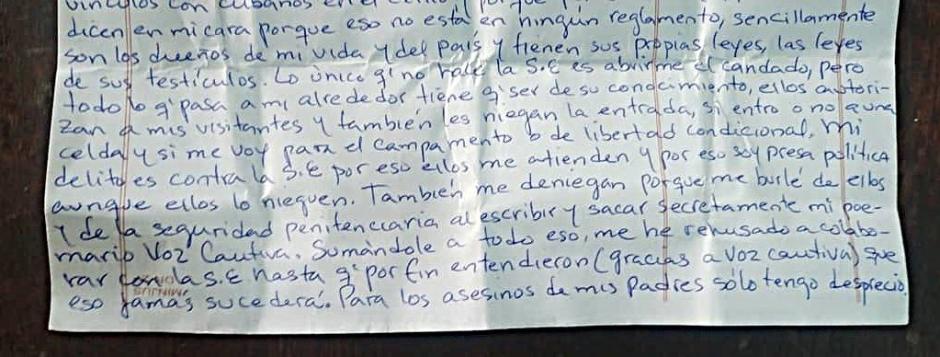 vínculos con cubanos en el
dicen en mi cara porque eso no está en ningún reglamento, sencillamente
son los dueños de mi vida y del país y tienen sus propias leyes, las leyes
de sus testículos. Lo único q' no hace la S.E es abrirme el candado, pero
todo lo q' pasa a mi alrededor tiene q' ser de su conocimiento, ellos autori-
zan a mis visitantes y también les niegan la entrada, si entro o no a una
celda y si me voy para el campamento o de libertad condicional. Mi
delito es contra la S.E por eso ellos me atienden y por eso soy presa política
aunque ellos lo nieguen. También me deniegan porque me burlé de ellos
y de la seguridad penitenciaria al escribir y sacar secretamente mi poe-
mario Voz Cautiva. Sumándole a todo eso, me he rehusado a colabo-
rar con la S.E hasta q' por fin entendieron (gracias a Voz cautiva) que
eso jamás sucederá. Para los asesinos de mis padres sólo tengo desprecio.